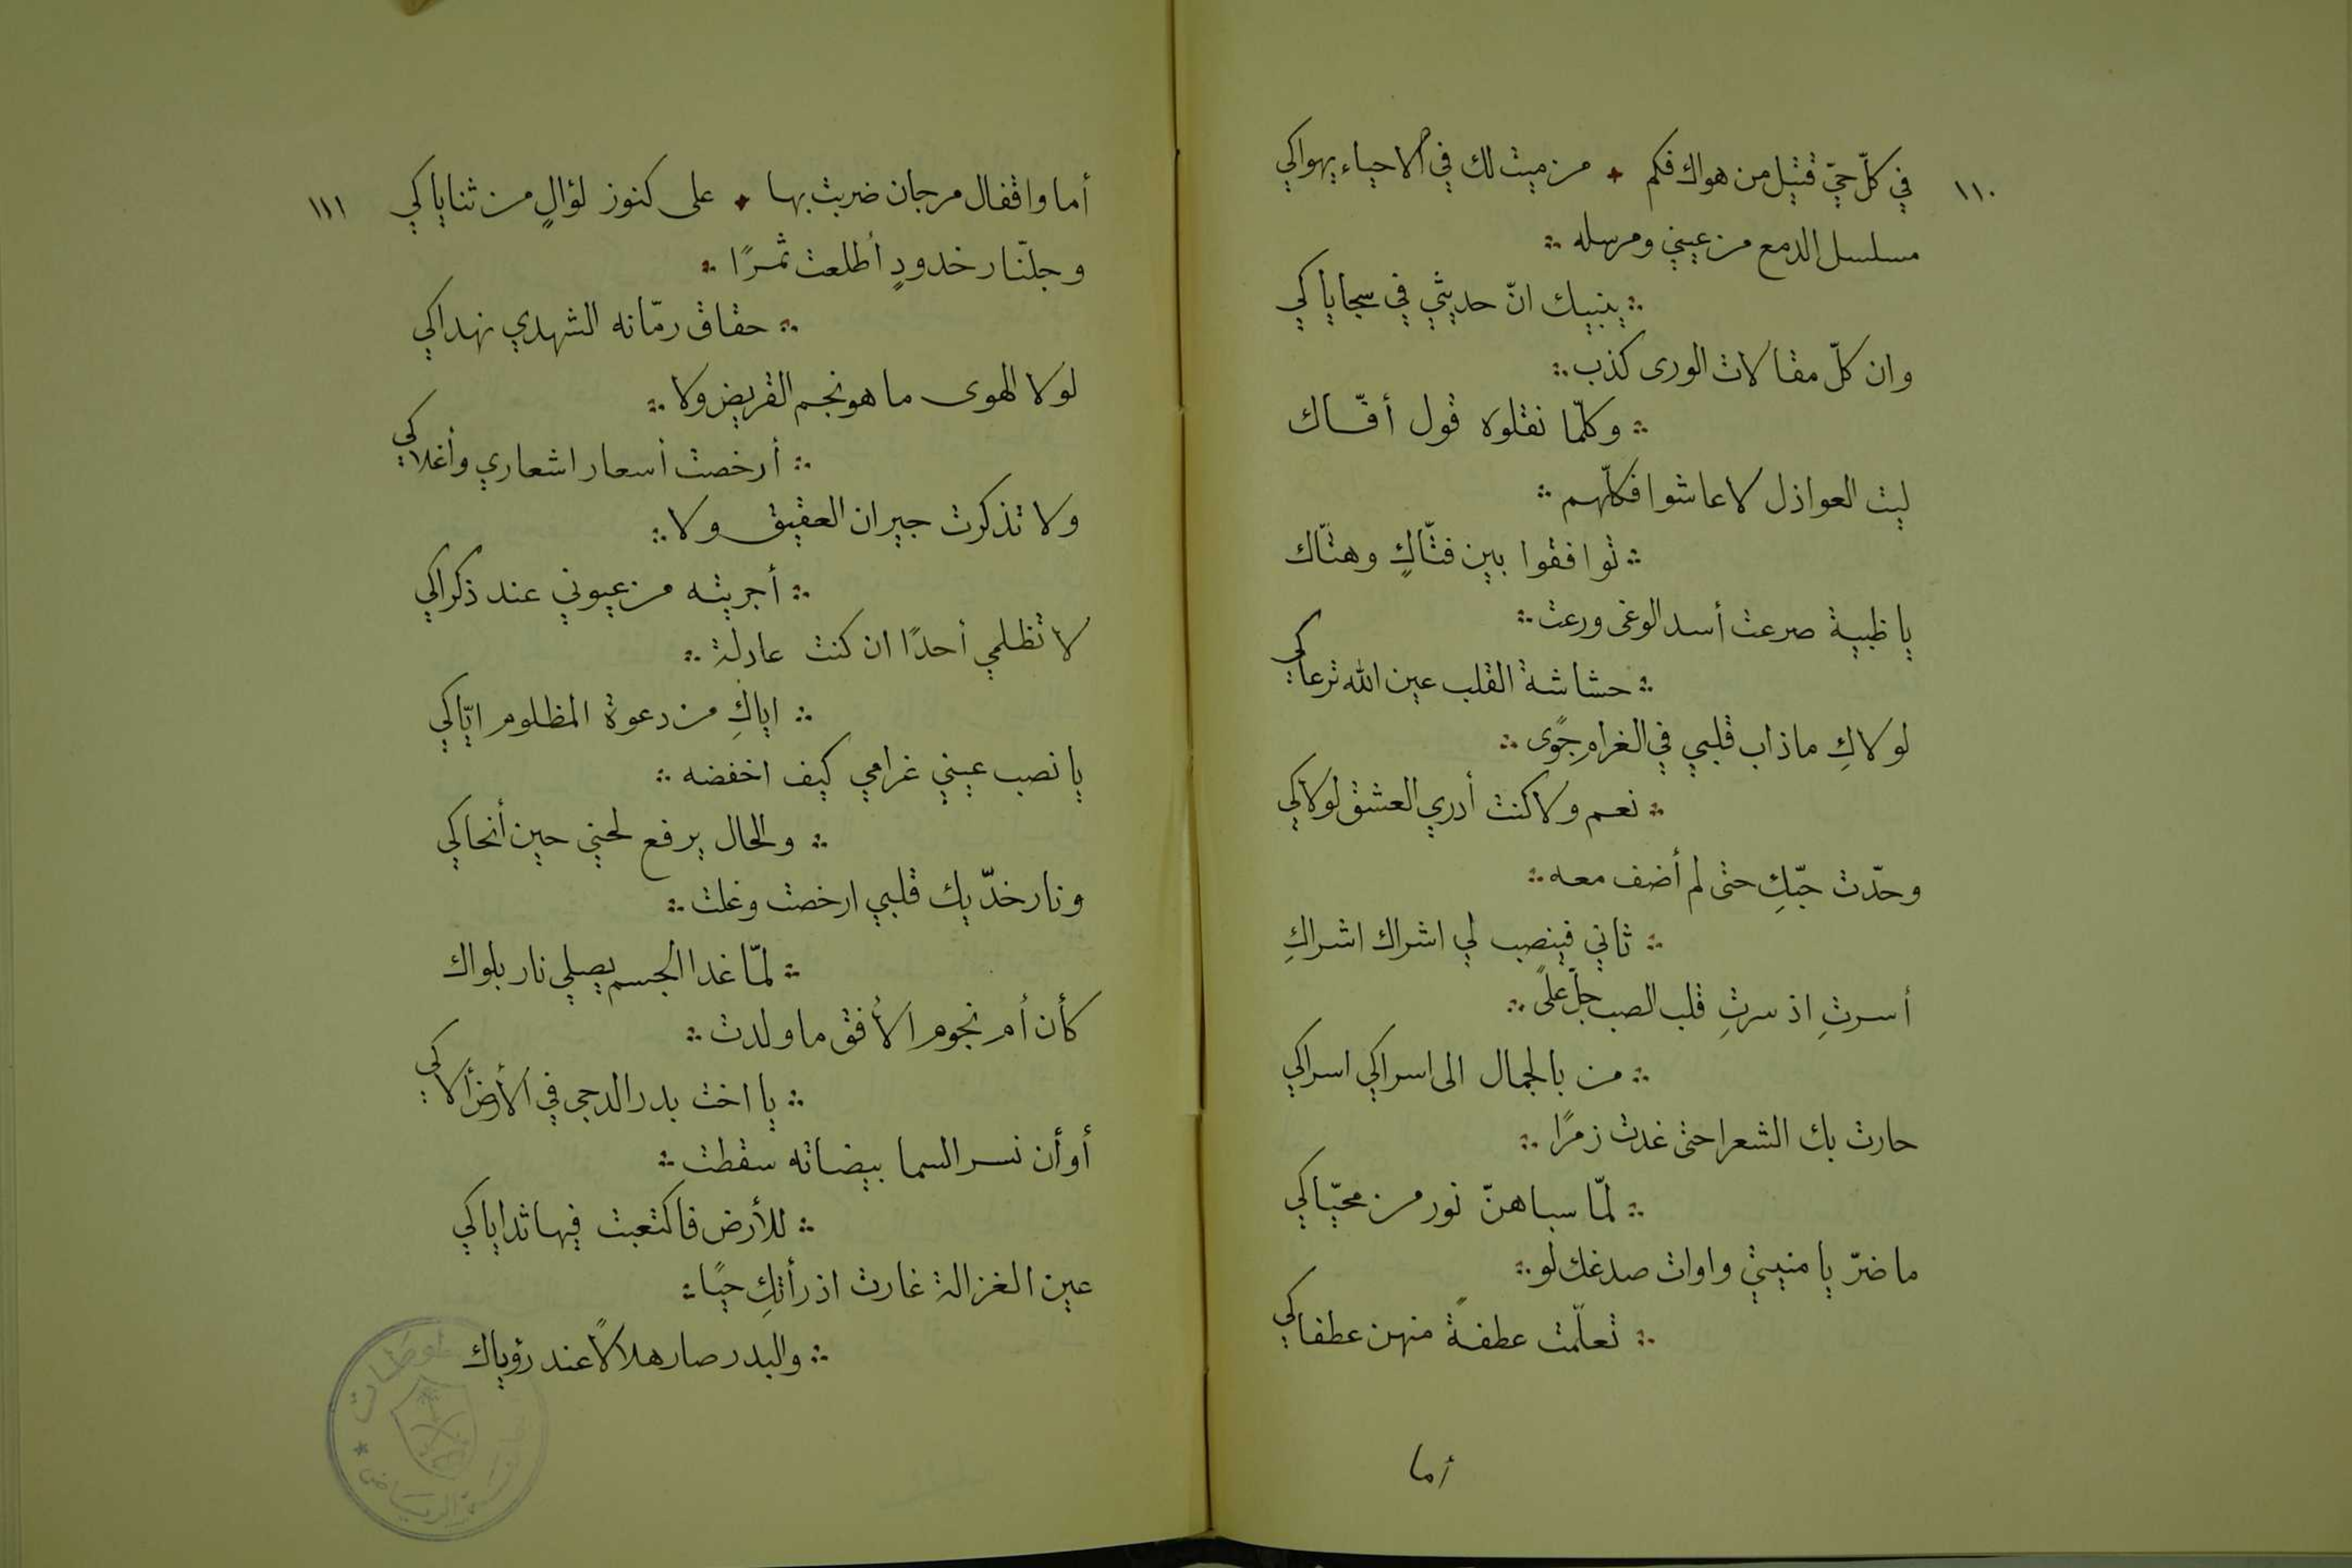 ١١٠
في كلّ حيّ قتيل من هواك فكم ۞ من ميت لك في الاحياء يهواكي
مسلسل الدمع من عيني ومرسله ∴
∴ ينبيك انّ حديثي في سجاياكي
وان كلّ مقالات الورى كذب ∴
∴ وكلّما نقلوه قول أفّاك
ليت العواذل لا عاشوا فكلّهم ∴
∴ توافقوا بين فتّاكٍ وهتّاك
يا ظبية صرعت أسد الوغى ورعت ∴
∴ حشاشة القلب عين الله ترعاكي
لولاكِ ما ذاب قلبي في الغرام جوًى ∴
∴ نعم ولا كنت أدري العشق لولاكي
وحّدت حبّكِ حتى لم أضف معه ∴
∴ ثاني فينصب لي اشراك اشراكِ
أسرتِ اذ سرتِ قلب الصب جلّ علىً ∴
∴ من بالجمال الى اسراكي اسراكي
حارت بك الشعرا حتى غدت زمرًا ∴
∴ لمّا سباهنّ نور من محيّاكي
ما ضرّ يا منيتي واوات صدغك لو ∴
∴ تعلّمت عطفةً منهن عطفاكي
أما
١١١
أما واقفال مرجان ضربت بها ۞ على كنوز لؤالٍ من ثناياكي
وجلّنار خدودٍ أطلعت ثمرًا ∴
∴ حقاق رمّانه الشهدي نهداكي
لولا الهوى ما هو نجم القريض ولا ∴
∴ أرخصت أسعار اشعاري وأغلاكي
ولا تذكرت جيران العقيق ولا ∴
∴ أجريته من عيوني عند ذكراكي
لا تظلمي أحدًا ان كنت عادلة ∴
∴ اياكِ من دعوة المظلوم ايّاكي
يا نصب عيني غرامي كيف اخفضه ∴
∴ والحال يرفع لحني حين أنحاكي
ونار خدّيك قلبي ارخصت وغلت ∴
∴ لمّا غدا الجسم يصلي نار بلواك
كأن أم نجوم الأفق ما ولدت ∴
∴ يا اخت بدر الدجى في الأرض ألاكي
أو أن نسر السما بيضاته سقطت ∴
∴ للأرض فاكتعبت فيها ثداياكي
عين الغزالة غارت اذ رأتكِ حيًا ∴
∴ والبدر صار هلالاً عند رؤياك